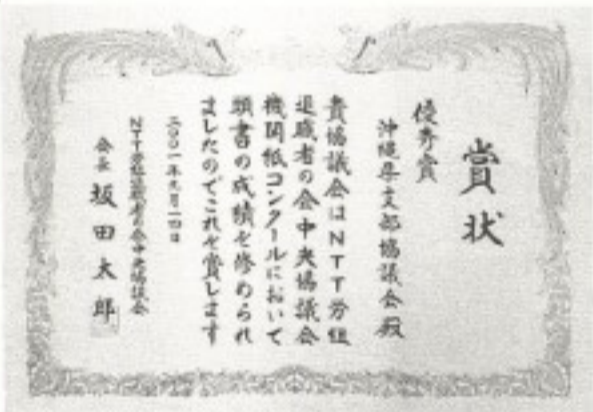 賞状
優秀賞
沖縄県支部協議会殿
貴協議会はNTT労組
退職者の会中央協議会
機関紙コンクールにおいて
頭書の成績を修められ
ましたのでこれを賞します
二〇〇一年九月一四日
NTT労組退職者の会中央協議会
会長 坂田太郎